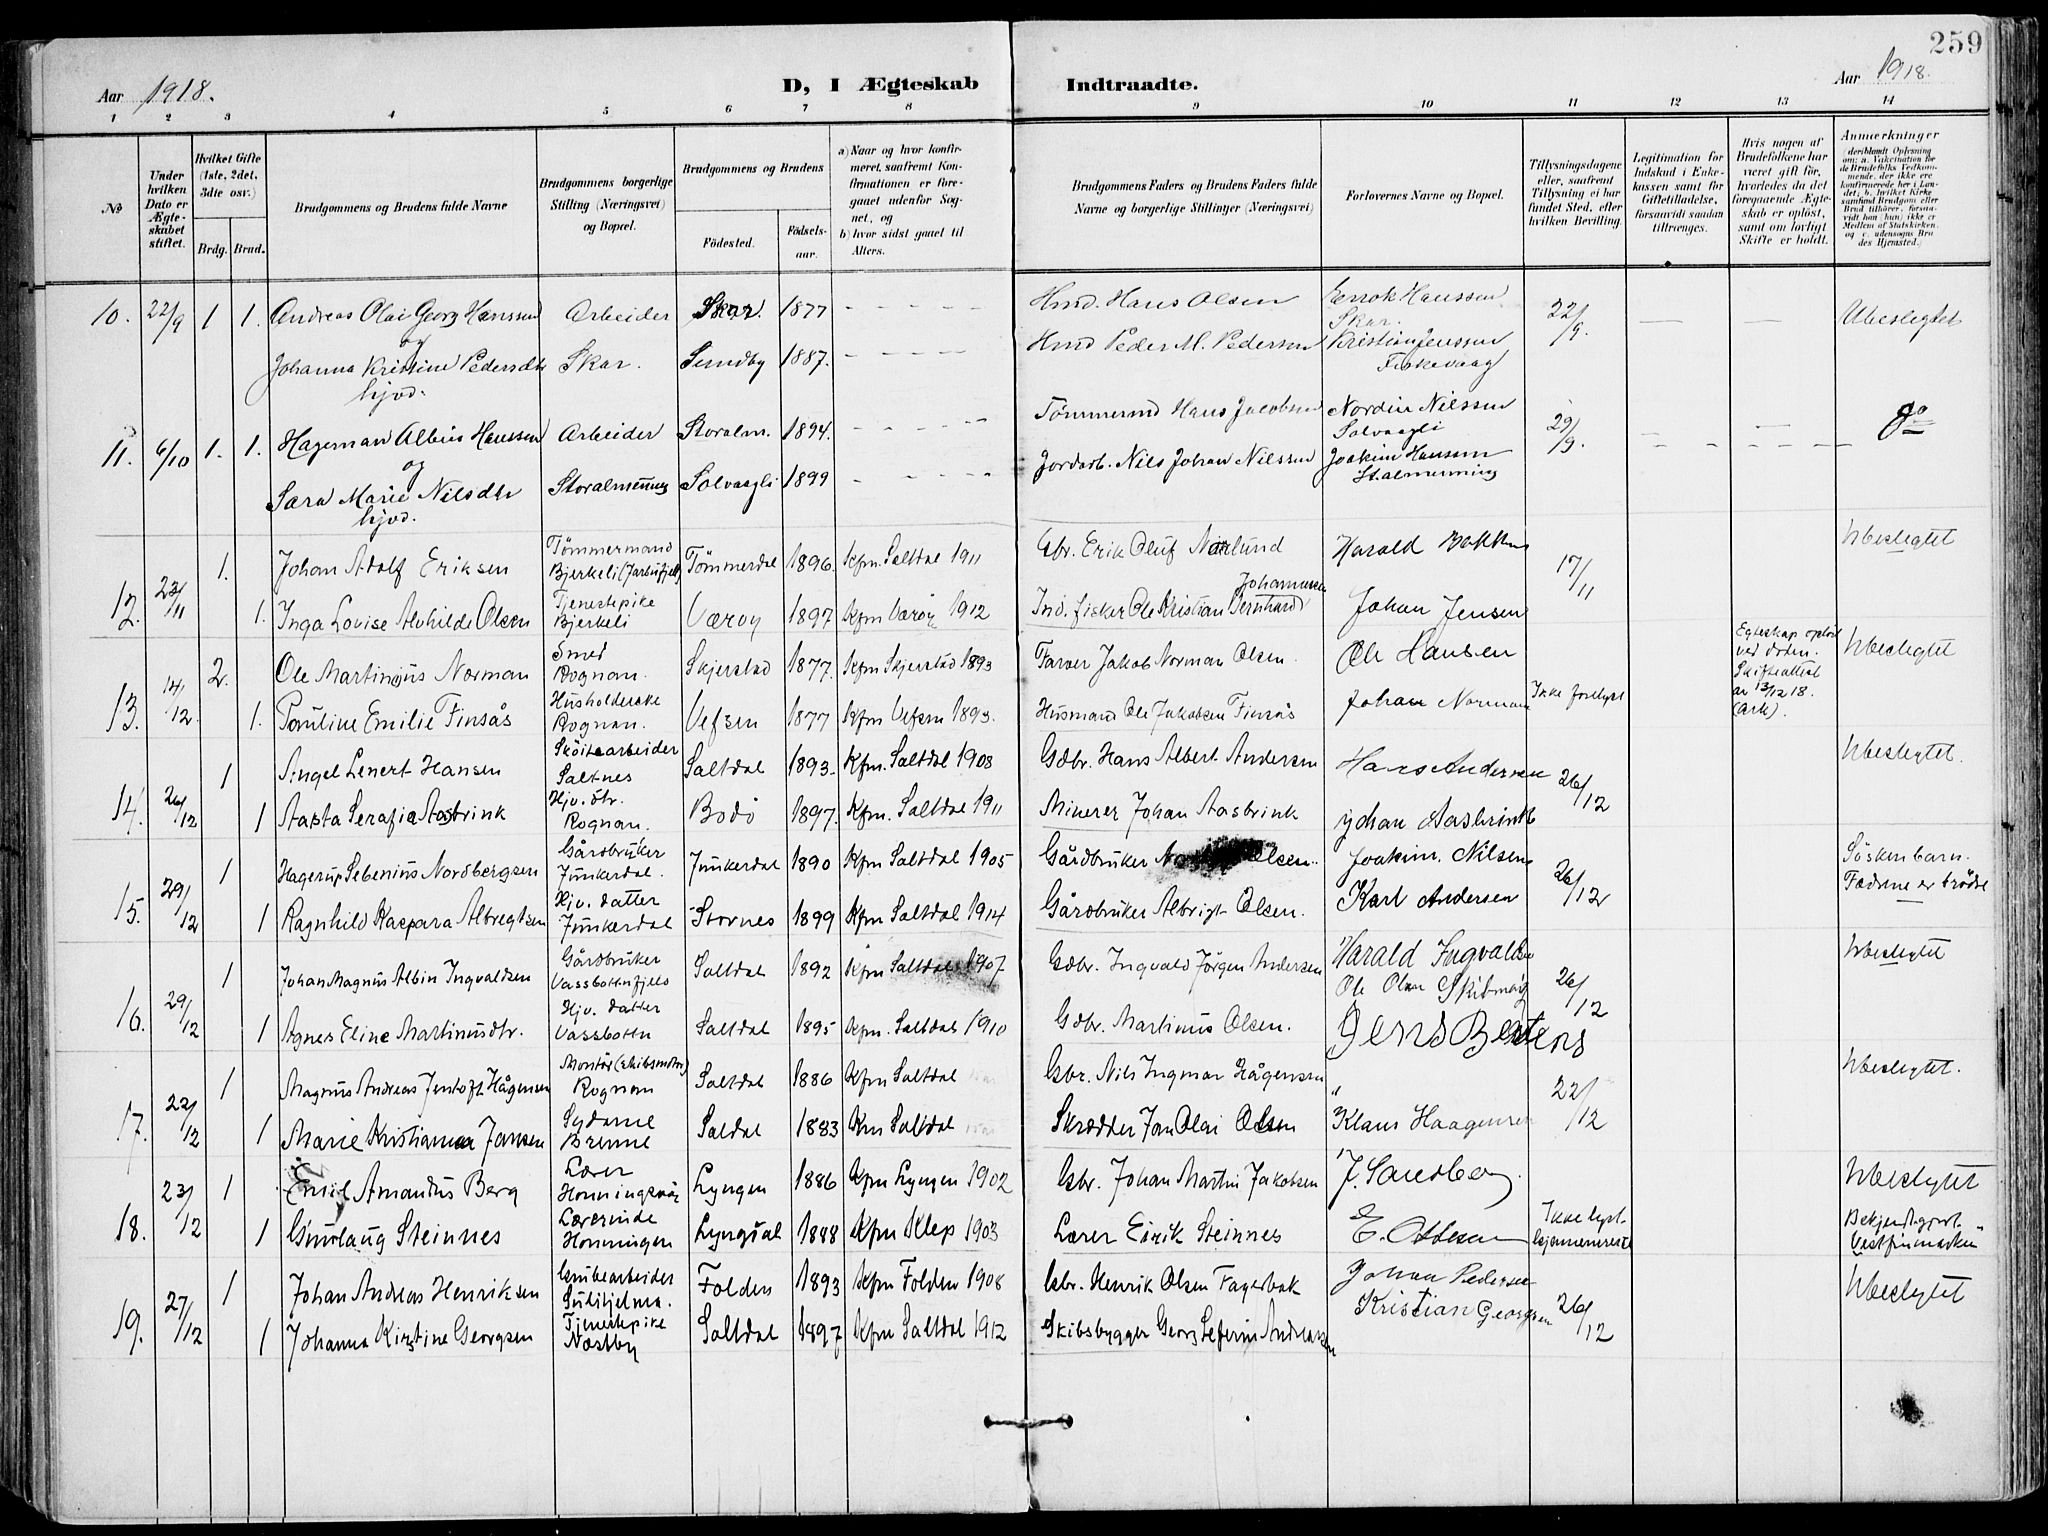 259
Aar 1918.
D, I Ægteskab Indtraadte.
Aar 1918.
1 2 3 4 5 6 7 8 9 10 11 12 13 14
No
Under hvilken Dato er Ægteskabet stiftet.
Hvilket Gifte (1ste, 2det, 3die osv.)
Brdg. Brud.
Brudgommens og Brudens fulde Navne
Brudgommens borgerlige Stilling (Næringsvei) og Bopæl.
Brudgommens og Brudens
Födested.
Födselsaar.
a) Naar og hvor konfirmeret, saafremt Konfirmationen er foregaaet udenfor Sognet, og
b) hvor sidst gaaet til Alters.
Brudgommens Faders og Brudens Faders fulde Navne og borgerlige Stillinger (Næringsvei)
Forlovernes Navne og Bopæl.
Tillysningsdagene eller, saafremt Tillysning ei har fundet Sted, efter hvilken Bevilling.
Legitimation for Indskud i Enkekassen samt for Giftetilladelse, forsaavidt saadan tiltrænges.
Hvis nogen af Brudefolkene har været gift før, hvorledes da det foregaaende Ægteskab er oplöst, samt om lovligt Skifte er holdt.
Anmærkninger
10. 22/9 1 1. Andreas Olai Georg Hanssen Arbeider Skar. 1877 - - - - Hmd. Hans Olsen Enok Hanssen 22/9. — — Ubeslegtet
og Skar.
Johanna Kristine Pedersdtr Skar. Sundby 1887. - - - - Hmd Peder M. Pedersen Kristian Jenssen
hjvd. Fiskevaag
11. 6/10 1. 1. Hageman Albius Hanssen Arbeider Storalm. 1894. - - - - Tömmermd Hans Jacobsen Nordin Nilssen 29/9. do
og Solvaagli
Sara Marie Nilsdtr Storalmenning Solvaagli 1899 - - - - Jordarb. Nils Johan Nilssen Joakim Hanssen
hjvd. St.almenning
12. 23/11 1. Johan Adolf Eriksen Tömmermand Bjerkeli Tömmerdal 1896. Kfm. Saltdal 1911 Gbr. Erik Oluf Norlund Harald 17/11 Ubeslegtet
1. Inga Lovise Alvhilde Olsen Tjenestepike Bjerkeli Værøy 1897 Kfm Værøy 1912 Ind. fisker Ole Kristian Bernhard Johannesen Johan Jensen
13. 14/12. 2. Ole Martinius Norman Smed Rognan. Skjerstad 1877. Kfm Skjerstad 1893 Farver Jakob Norman Olsen. Ole Hansen Ikke forelyst Egteskap opløst ved døden. Skifteattest av 13/12 18. (Ark). Ubeslegtet
1. Pauline Emilie Finsås Husholderske Rognan. Vefsen 1877 Kfm Vefsen 1893. Husmand Ole Jakobsen Finsås Johan Norman
14. 26/12 1 Angel Lenert Hansen Sköitearbeider Saltnes Saltdal 1893. Kfm. Saltdal 1908 Gdbr. Hans Albert Andersen Hans Andersen 26/12 Ubeslegtet.
1 Aasta Serafia Aasbrink Hjv. dtr. Rognan. Bodö 1897. Kfm. Saltdal 1911 Minerer Johan Aasbrink Johan Aasbrink
15. 29/12 1 Hagerup Sebenius Nordbergsen Gårdbruker Junkerdal. Junkerdal 1890 Kfm Saltdal 1905 Gårdbruker Olsen. Joakim. Nilsen 26/12 Söskenbarn. Fædrene er brödre
1 Ragnhild Kaspara Albregtsen Hjv. datter Junkerdal Stornes 1899 Kfm Saltdal 1914 Gårdbruker Albrigt Olsen. Karl Andersen
16. 29/12 1 Johan Magnus Albin Ingvaldsen Gårdbruker Vassbotnfjeld Saltdal 1892 Kfm Saltdal 1907 Gdbr. Ingvald Jørgen Andersen Harald Ingvaldsen 26/12 Ubeslegtet
Ole Olsen
1 Agnes Eline Martinusdtr. Hjv. datter Vassbotn Saltdal 1895 Kfm. Saltdal 1910 Gdbr. Martinus Olsen. Jens
17. 22/12 1 Magnus Andreas Jentoft Hågensen Montör (Skibsmotor) Rognan Saltdal 1886 Kfm Saltdal Gbr. Nils Ingmar Hågensen " 22/12 Ubeslegtet.
1 Marie Kristianna Jansen Sydame Brenne Saldal 1883 Kfm Saltdal Skrædder Jan Olai Olsen Klaus Haagensen
18. 23/12 1 Emil Amandus Berg Lærer Honningsvåg Lyngen 1886 Kfm Lyngen 1902 Gbr. Johan Martin Jakobsen J. Sandberg. Ubeslegtet
1 Gunlaug Steinnes Lærerinde Honningen Lyngdal 1888 Kfm Klep 1903 Lærer Eirik Steinnes E. Ikke lyst Bekjendtgjort "Vestfinmarken"
19. 27/12 1 Johan Andreas Henriksen Grubearbeider Sulitjelma. Folden 1893 Kfm Folden 1908 Gbr. Henrik Olsen Fagerbak Johan Pedersen 26/12 Ubeslegtet
1 Johanna Kirstine Georgsen Tjenestepike Næstby Saltdal 1897 Kfm Saltdal 1912 Skibsbygger Georg Seferin Andreassen Kristian Georgsen